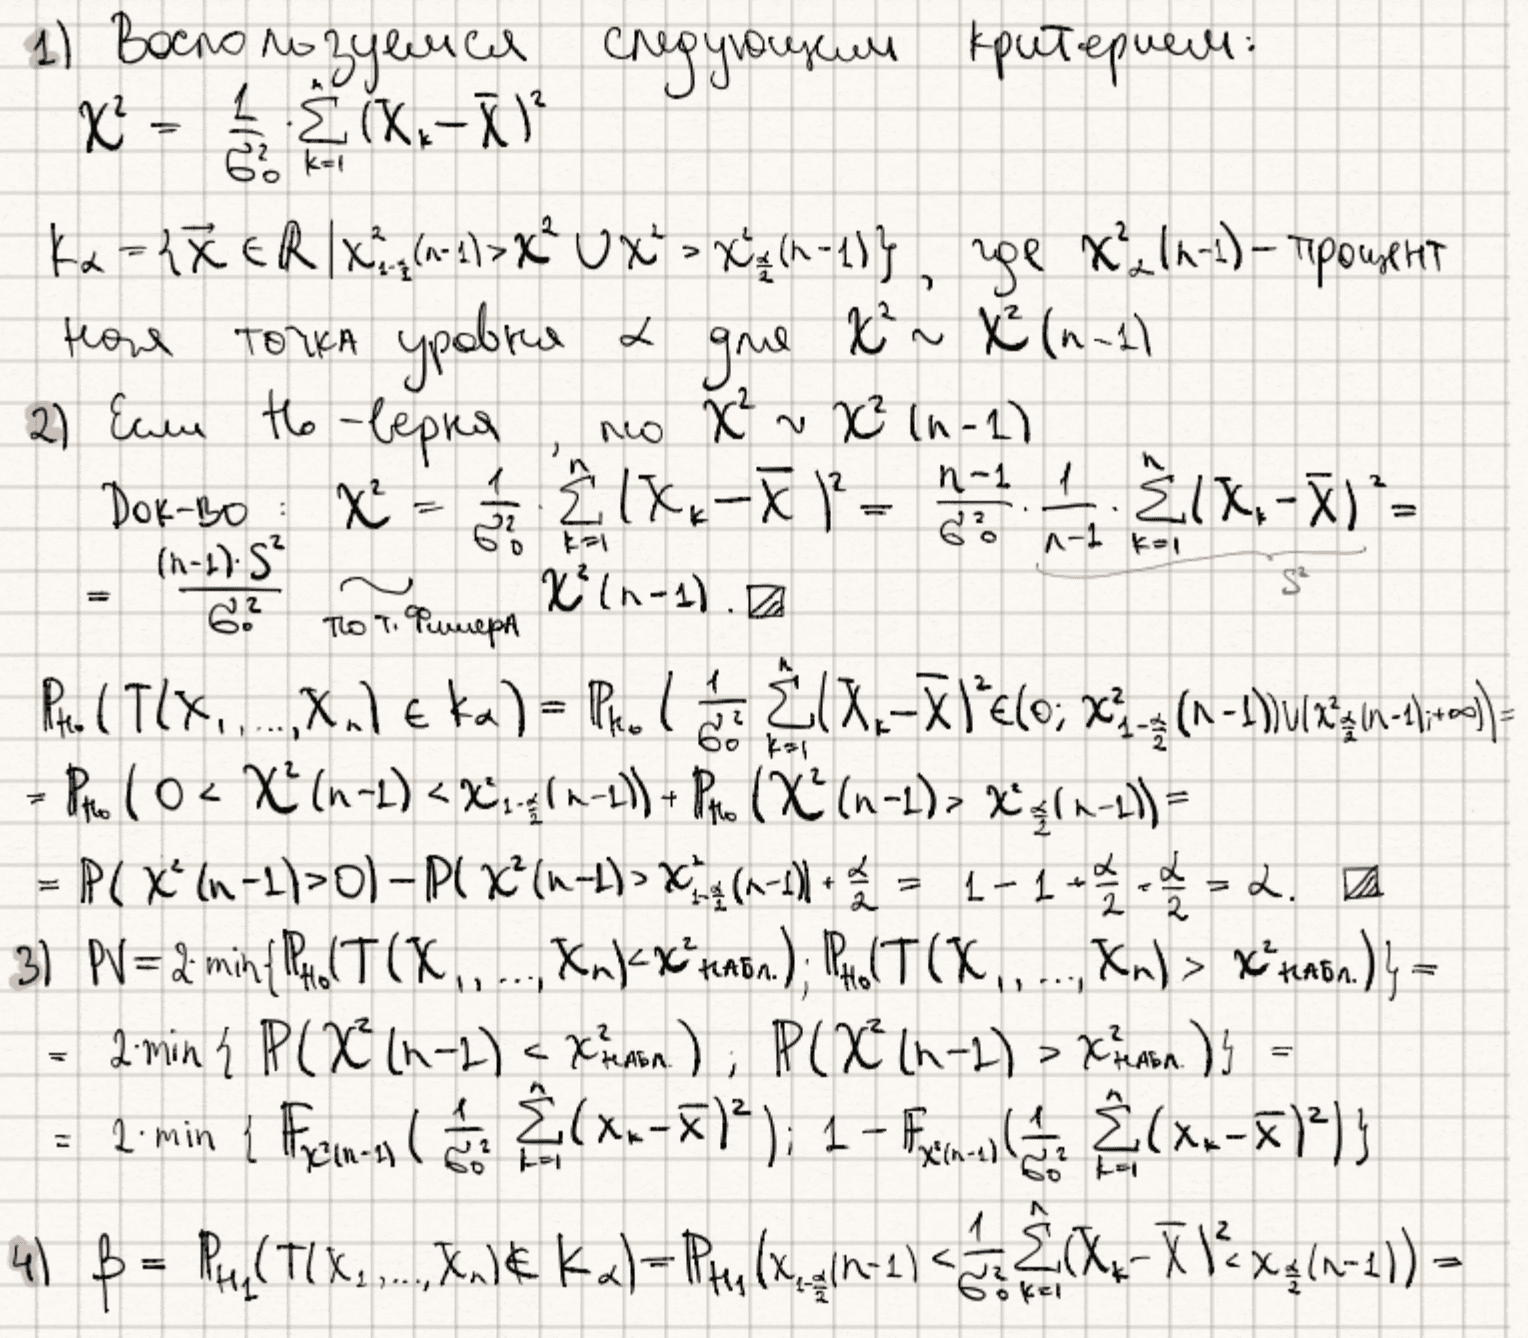 1) Воспользуемся следующим критерием:
χ² = 1/σ₀² · ∑ₖ₌₁ⁿ (Xₖ − X̄)²
K_α = {x⃗ ∈ ℝ | χ²_{1−α/2}(n−1) > χ² ∪ χ² > χ²_{α/2}(n−1)}, где χ²_α(n−1) – процент
ная точка уровня α для χ² ~ χ²(n−1)
2) Если H₀ – верна, то χ² ~ χ²(n−1)
Док-во: χ² = 1/σ₀² · ∑ₖ₌₁ⁿ (Xₖ − X̄)² = (n−1)/σ₀² · 1/(n−1) · ∑ₖ₌₁ⁿ (Xₖ − X̄)² =
S²
= (n−1)·S²/σ₀² ~ по т. Фишера χ²(n−1). ▨
P_{H₀}(T(X₁,...,Xₙ) ∈ K_α) = P_{H₀}(1/σ₀² ∑ₖ₌₁ⁿ (Xₖ − X̄)² ∈ (0; χ²_{1−α/2}(n−1)) ∪ (χ²_{α/2}(n−1); +∞)) =
= P_{H₀}(0 < χ²(n−1) < χ²_{1−α/2}(n−1)) + P_{H₀}(χ²(n−1) > χ²_{α/2}(n−1)) =
= P(χ²(n−1) > 0) − P(χ²(n−1) > χ²_{1−α/2}(n−1)) + α/2 = 1 − 1 + α/2 + α/2 = α. ▨
3) PV = 2·min{P_{H₀}(T(X₁,...,Xₙ) < χ²набл.); P_{H₀}(T(X₁,...,Xₙ) > χ²набл.)} =
= 2·min{P(χ²(n−1) < χ²набл.); P(χ²(n−1) > χ²набл.)} =
= 2·min{F_{χ²(n−1)}(1/σ₀² ∑ₖ₌₁ⁿ (xₖ − x̄)²); 1 − F_{χ²(n−1)}(1/σ₀² ∑ₖ₌₁ⁿ (xₖ − x̄)²)}
4) β = P_{H₁}(T(X₁,...,Xₙ) ∉ K_α) = P_{H₁}(χ_{1−α/2}(n−1) < 1/σ₀² ∑ₖ₌₁ⁿ (Xₖ − X̄)² < χ_{α/2}(n−1)) =